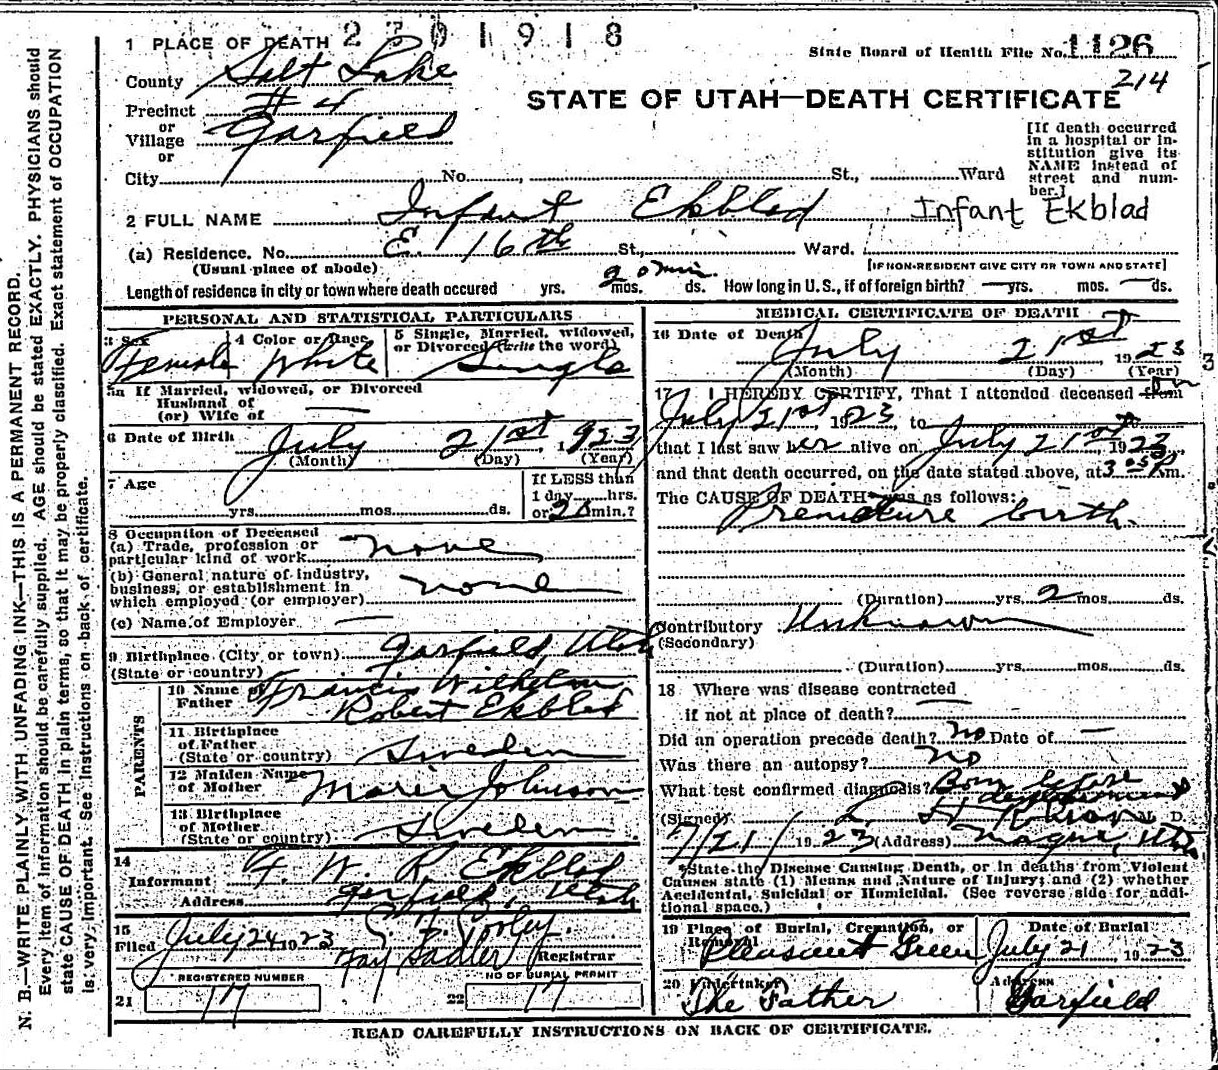 2301918
1 PLACE OF DEATH
State Board of Health File No. 1126
214
County Salt Lake
STATE OF UTAH—DEATH CERTIFICATE
Precinct #4
or
Village Garfield
or
City No. St., Ward
[If death occurred
in a hospital or in-
stitution give its
NAME instead of
street and num-
ber.]
2 FULL NAME Infant Ekblad Infant Ekblad
(a) Residence. No. E. 16th St., Ward.
(Usual place of abode) [IF NON-RESIDENT GIVE CITY OR TOWN AND STATE]
Length of residence in city or town where death occured yrs. 20 min. mos. ds. How long in U. S., if of foreign birth? — yrs. mos. — ds.
PERSONAL AND STATISTICAL PARTICULARS
3 Sex Female
4 Color or Race White
5 Single, Married, widowed,
or Divorced (write the word)
Single
5a If Married, widowed, or Divorced
Husband of
(or) Wife of —
6 Date of Birth July 21st, 1923
(Month) (Day) (Year)
7 Age
yrs. mos. ds.
If LESS than
1 day hrs.
or 20 min.?
8 Occupation of Deceased
(a) Trade, profession or
particular kind of work none
(b) General nature of industry,
business, or establishment in
which employed (or employer) none
(c) Name of Employer —
9 Birthplace (City or town) Garfield, Utah
(State or country)
PARENTS
10 Name of
Father Francis Wilhelm
Robert Ekblad
11 Birthplace
of Father
(State or country) Sweden
12 Maiden Name
of Mother Marie Johnson
13 Birthplace
of Mother
(State or country) Sweden
14
Informant F. W. R. Ekblad
Address Garfield, Utah
15
Filed July 24 1923
Registrar
REGISTERED NUMBER
21 17
NO OF BURIAL PERMIT
22 17
MEDICAL CERTIFICATE OF DEATH
16 Date of Death July 21st, 1923
(Month) (Day) (Year)
17 I HEREBY CERTIFY, That I attended deceased from on
July 21st 1923, to
that I last saw her alive on July 21st 1923
and that death occurred, on the date stated above, at 3:05 P m.
The CAUSE OF DEATH was as follows:
Premature birth.
(Duration) yrs. 2 mos. ds.
Contributory Unknown
(Secondary)
(Duration) yrs. mos. ds.
18 Where was disease contracted
if not at place of death? —
Did an operation precede death? No Date of —
Was there an autopsy? No
What test confirmed diagnosis? Born before
development
(Signed) M. D.
7/21/1923 (Address) Magna, Utah
*State the Disease Causing Death, or in deaths from Violent
Causes state (1) Means and Nature of Injury; and (2) whether
Accidental, Suicidal or Homicidal. (See reverse side for addi-
tional space.)
19 Place of Burial, Cremation, or
Removal
Pleasant Green
Date of Burial
July 21 1923
20 Undertaker
The Father
Address
Garfield
READ CAREFULLY INSTRUCTIONS ON BACK OF CERTIFICATE.
N. B.—WRITE PLAINLY, WITH UNFADING INK—THIS IS A PERMANENT RECORD.
Every item of information should be carefully supplied. AGE should be stated EXACTLY. PHYSICIANS should
state CAUSE OF DEATH in plain terms, so that it may be properly classified. Exact statement of OCCUPATION
is very important. See instructions on back of certificate.